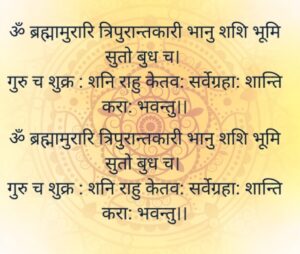 ॐ ब्रह्मामुरारि त्रिपुरान्तकारी भानु शशि भूमि
सुतो बुध च।
गुरु च शुक्र : शनि राहु केतव: सर्वेग्रहा: शान्ति
करा: भवन्तु।।
ॐ ब्रह्मामुरारि त्रिपुरान्तकारी भानु शशि भूमि
सुतो बुध च।
गुरु च शुक्र : शनि राहु केतव: सर्वेग्रहा: शान्ति
करा: भवन्तु।।